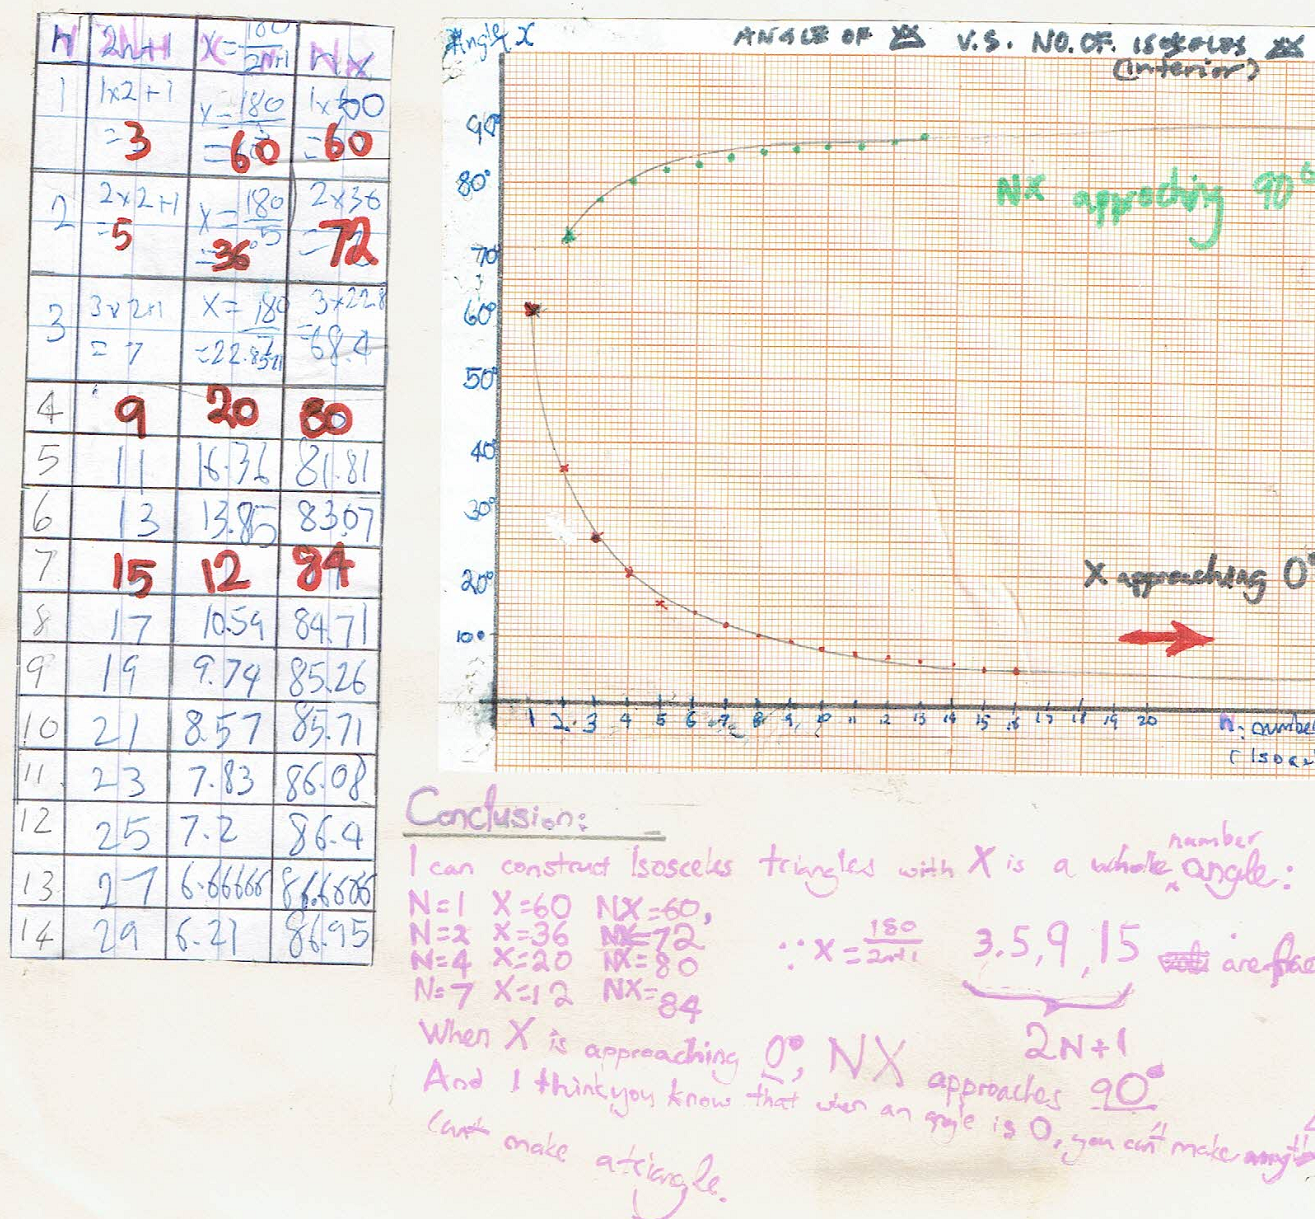 N 2N+1 X=180/2N+1 NX
1 1x2+1 =3 X=180/3 =60 1x60 =60
2 2x2+1 =5 X=180/5 =36° 2x36 =72
3 3x2+1 =7 X=180/7 =22.8571 3x22.8 =68.4
4 9 20 80
5 11 16.36 81.81
6 13 13.85 83.07
7 15 12 84
8 17 10.59 84.71
9 19 9.74 85.26
10 21 8.57 85.71
11 23 7.83 86.08
12 25 7.2 86.4
13 27 6.66666 86.6666
14 29 6.21 86.95
Angle X
ANGLE OF V.S. NO. OF. ISOSCELES
(interior)
90°
80°
70°
60°
50°
40°
30°
20°
10°
NX approching 90°
X approaching 0°
1 2 3 4 5 6 7 8 9 10 11 12 13 14 15 16 17 18 19 20
N: number
Conclusion:
I can construct Isosceles triangles with X is a whole number angle:
N=1 X=60 NX=60,
N=2 X=36 NX=72
N=4 X=20 NX=80
N=7 X=12 NX=84
∵ X=180/2n+1 3.5,9,15 are
2N+1
When X is approaching 0°, NX approaches 90°
And I think you know that when an angle is 0, you can't make
can't make a triangle.